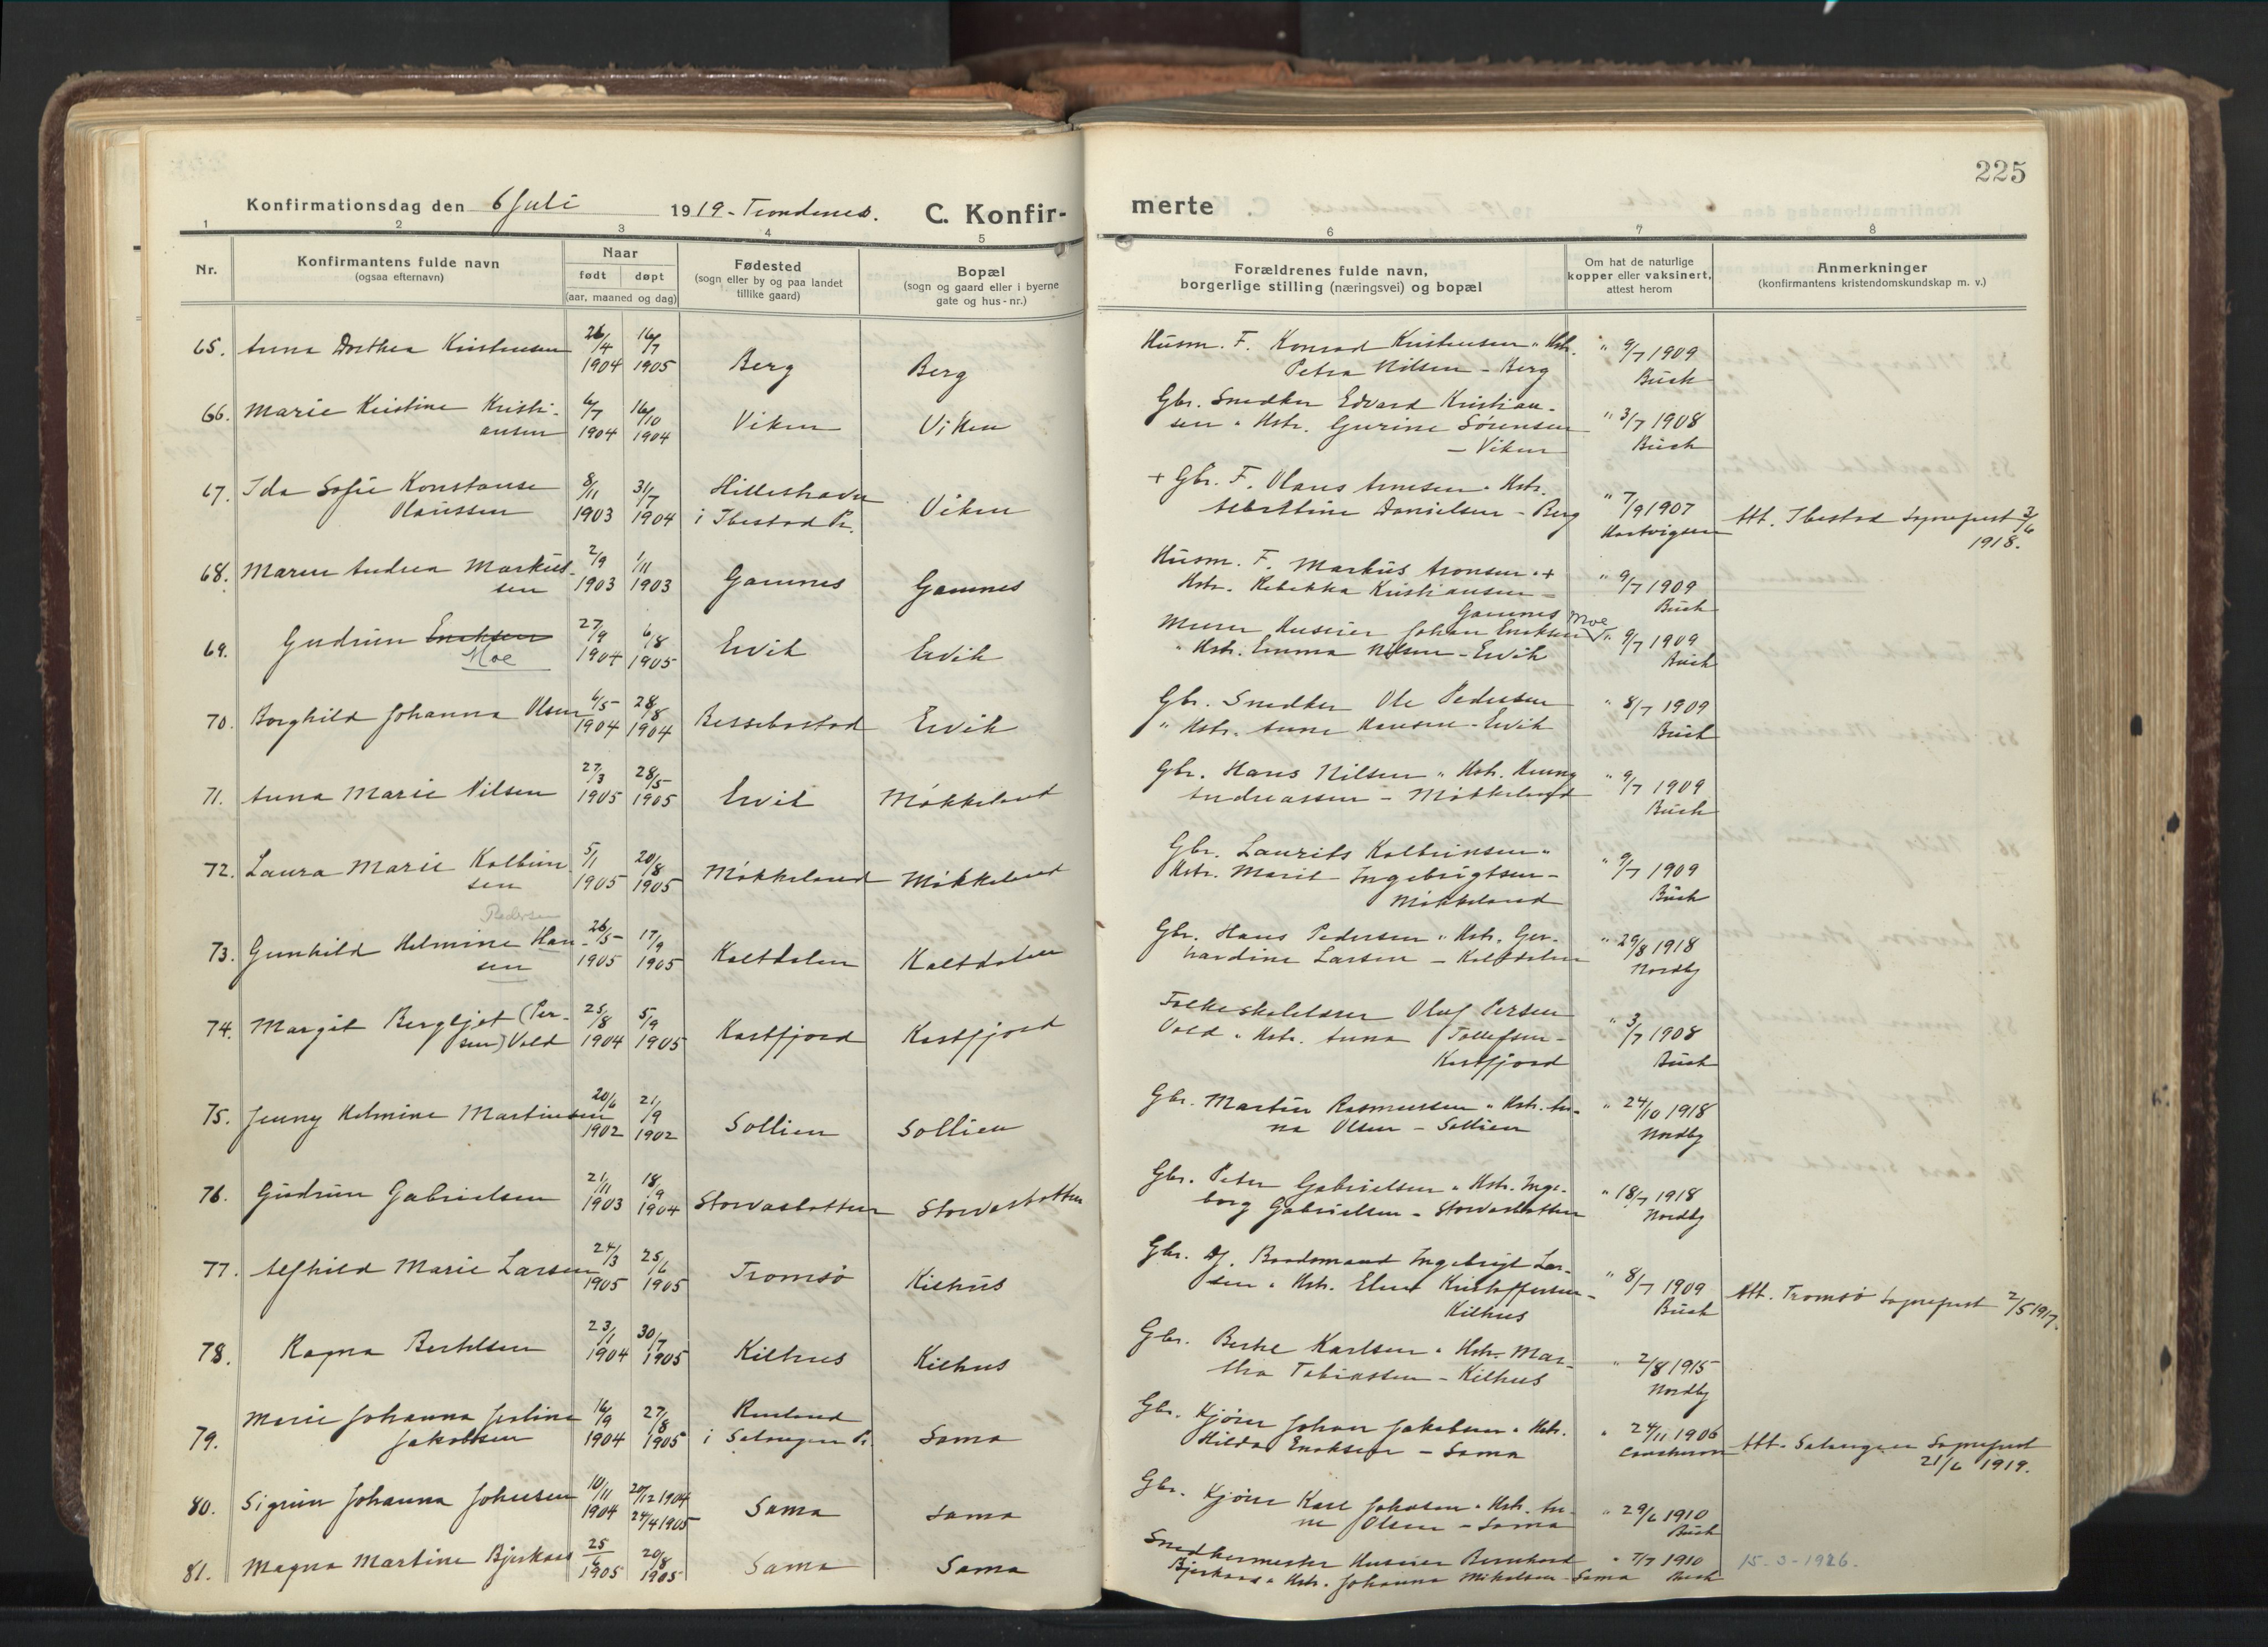 225
Konfirmationsdag den 6 Juli 1919 - Trondenes. C. Konfir-
merte
1 2 3 4 5
6 7 8
Nr.
Konfirmantens fulde navn
(ogsaa efternavn)
Naar
født døpt
(aar, maaned og dag)
Fødested
(sogn eller by og paa landet
tillike gaard)
Bopæl
(sogn og gaard eller i byerne
gate og hus-nr.)
Forældrenes fulde navn,
borgerlige stilling (næringsvei) og bopæl
Om hat de naturlige
kopper eller vaksinert,
attest herom
Anmerkninger
(konfirmantens kristendomskundskap m. v.)
65. Anna Dorthea Kristensen 26/4 1904 16/7 1905 Berg Berg
Husm. F. Konrad Kristensen " Hstr.
Petra Nilsen - Berg
" 9/7 1909
Buch
66. Marie Kristine Kristi-
ansen 6/7 1904 16/10 1904 Viken Viken
Gbr. Snedker Edvard Kristian-
sen " Hstr. Gurine Sørensen
- Viken
" 3/7 1908
Buch
67. Ida Sofie Konstanse
Olaussen 8/11 1903 31/7 1904 Hilleshavn
i Ibestad Pr. Viken
+ Gbr. F. Olaus Arnesen " Hstr.
Albertine Danielsen - Berg
" 7/9 1907
Hartvigsen
Att. Ibestad Sogneprest 3/6
1918.
68. Maren Andrea Markus-
sen 2/9 1903 1/11 1903 Gamnes Gamnes
Husm. F. Markus Aronsen " +
Hstr. Rebekka Kristiansen -
Gamnes
" 9/7 1909
Buch
69. Gudrun Enoksen
Moe 27/9 1904 6/8 1905 Ervik Ervik
Murer Huseier Johan Enoksen Moe
" Hstr. Emma Nilsen - Ervik
" 9/7 1909
Buch
70. Borghild Johanna Olsen 6/5 1904 28/8 1904 Bessebostad Ervik
Gbr. Snedker Ole Pedersen
" Hstr. Anne Hansen - Ervik
" 8/7 1909
Buch
71. Anna Marie Nilsen 27/3 1905 28/5 1905 Ervik Møkkeland
Gbr. Hans Nilsen " Hstr.
Andreassen - Møkkeland
" 9/7 1909
Buch
72. Laura Marie Kolbein-
sen 5/1 1905 20/8 1905 Møkkeland Møkkeland
Gbr. Laurits Kolbeinsen "
Hstr. Marit Ingebrigtsen -
Møkkeland
" 9/7 1909
Buch
Pedersen
73. Gunhild Helmine Han-
sen 26/5 1905 17/9 1905 Kaltdalen Kaltdalen
Gbr. Hans Pedersen " Hstr. Ger-
hardine Larsen - Kaltdalen
" 29/8 1918
Nordby
74. Margit Bergljot (Per-
sen) Vold 25/8 1904 5/9 1905 Kastfjord Kastfjord
Folkeskolelærer Oluf Persen
Vold " Hstr. Anna Tollefsen -
Kastfjord
" 3/7 1908
Buch
75. Jenny Helmine Martinsen 20/6 1902 21/9 1902 Sollien Sollien
Gbr. Martin Rasmussen " Hstr. An-
na Olsen - Sollien
" 24/10 1918
Nordby
76. Gudrun Gabrielsen 21/11 1903 18/9 1904 Storvasbotten Storvasbotten
Gbr. Peter Gabrielsen " Hstr. Inge-
borg Gabrielsen - Storvasbotten
" 18/7 1918
Nordby
77. Alfhild Marie Larsen 24/3 1905 25/6 1905 Tromsø Kilhus
Gbr. Dj. Baadsmand Ingebrigt Lar-
sen " Hstr. Elen Kristoffersen -
Kilhus
" 8/7 1909
Buch
Att. Tromsø Sogneprest 2/5 1917.
78. Ragna Berthelsen 23/1 1904 30/7 1905 Kilhus Kilhus
Gbr. Bertel Karlsen " Hstr. Mar-
tha Tobiassen - Kilhus
" 2/8 1915
Nordby
79. Marie Johanna Josline
Jakobsen 16/9 1904 27/8 1905
i Salangen Pr. Sama
Gbr. Kjører Johan Jakobsen " Hstr.
Hilda Enoksen - Sama
" 24/11 1906
Att. Salangen Sogneprest
21/6 1919.
80. Sigrun Johanna Johnsen 10/11 1904 20/12 1904
24/4 1905 Sama Sama
Gbr. Kjører Karl Johnsen " Hstr. An-
ne Olsen - Sama
" 29/6 1910
Buch
81. Magna Martine Bjerkaas 25/6 1905 20/8 1905 Sama Sama
Snedkermester Huseier Bernhard
Bjerkaas " Hstr. Johanna Mikalsen - Sama
" 7/7 1910
Buch
15-3-1926.